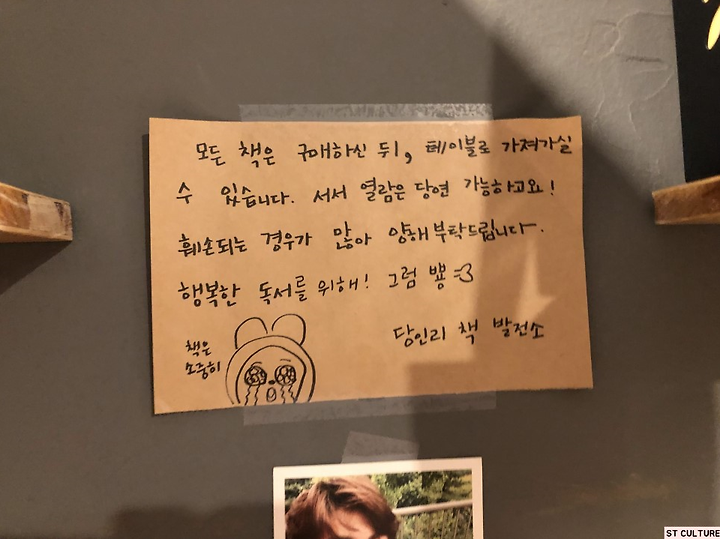 모든 책은 구매하신 뒤, 테이블로 가져가실
수 있습니다. 서서 열람은 당연 가능하고요!
훼손되는 경우가 많아 양해부탁드립니다.
행복한 독서를 위해! 그럼 뿅=3
당인리 책 발전소
책은
소중히
ST CULTURE